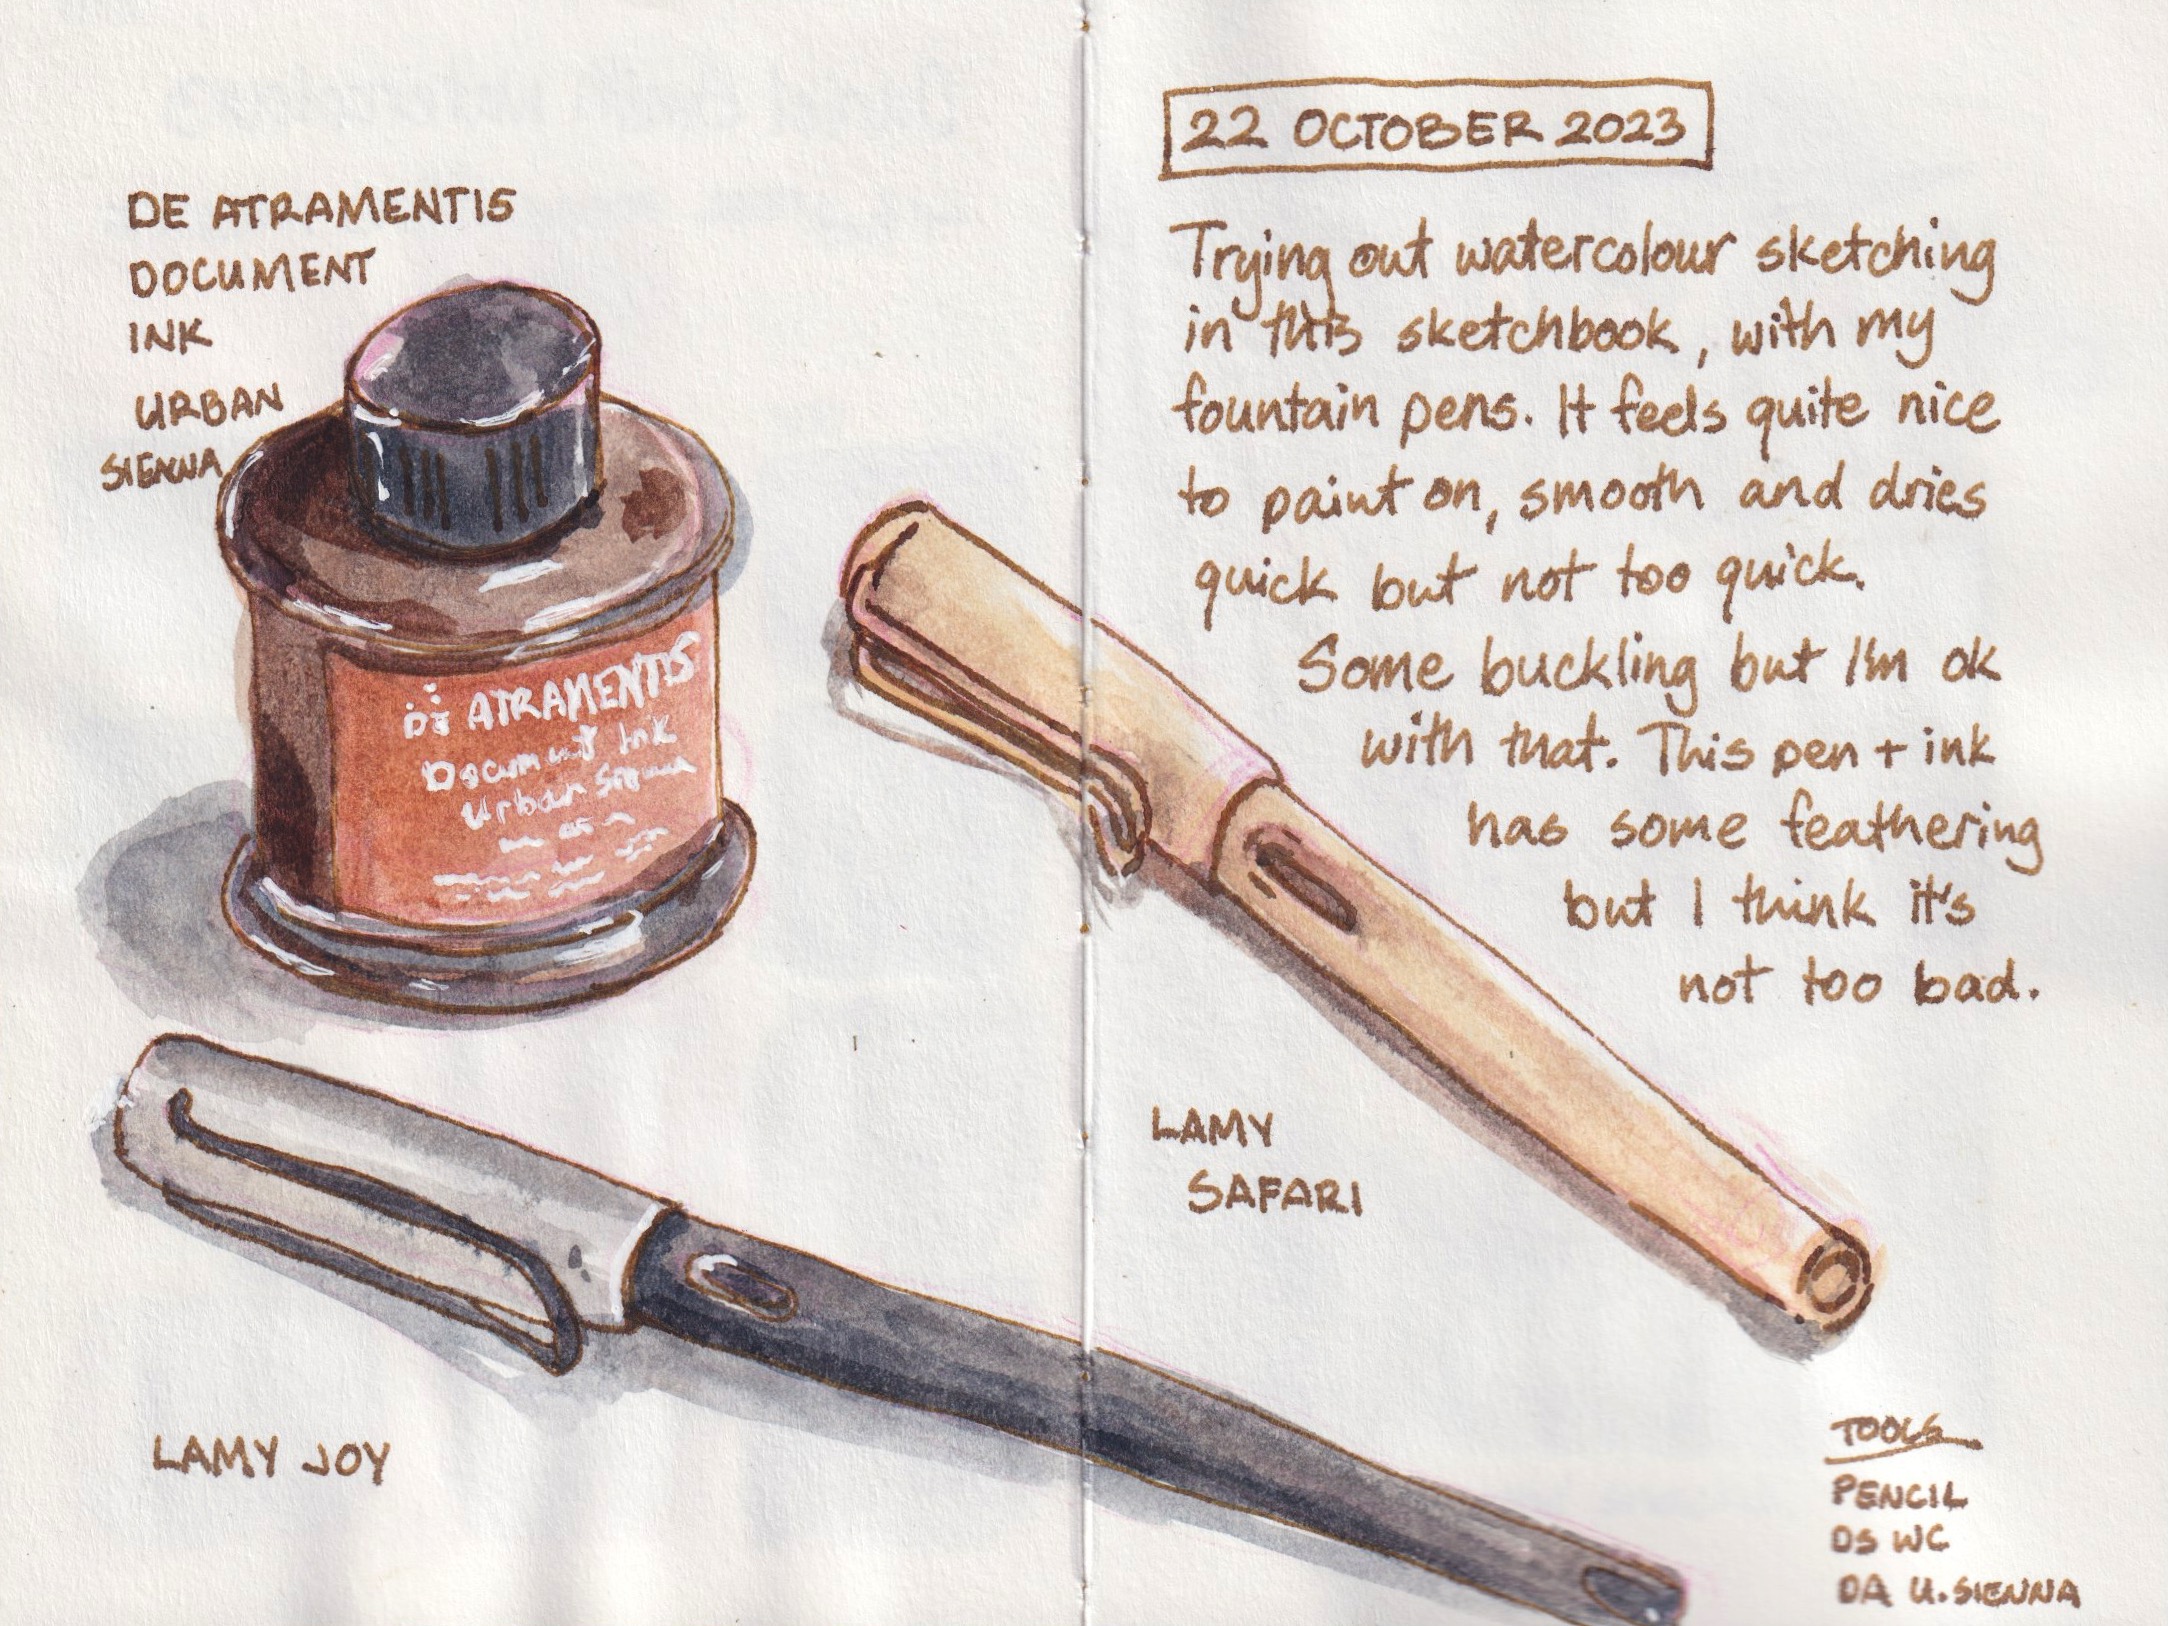 DE ATRAMENTIS
DOCUMENT
INK
URBAN
SIENNA
DE ATRAMENTIS
Document Ink
Urban Sienna
LAMY JOY
22 OCTOBER 2023
Trying out watercolour sketching
in this sketchbook, with my
fountain pens. It feels quite nice
to paint on, smooth and dries
quick but not too quick.
Some buckling but I'm ok
with that. This pen + ink
has some feathering
but I think it's
not too bad.
LAMY
SAFARI
TOOLS
PENCIL
DS WC
DA U. SIENNA